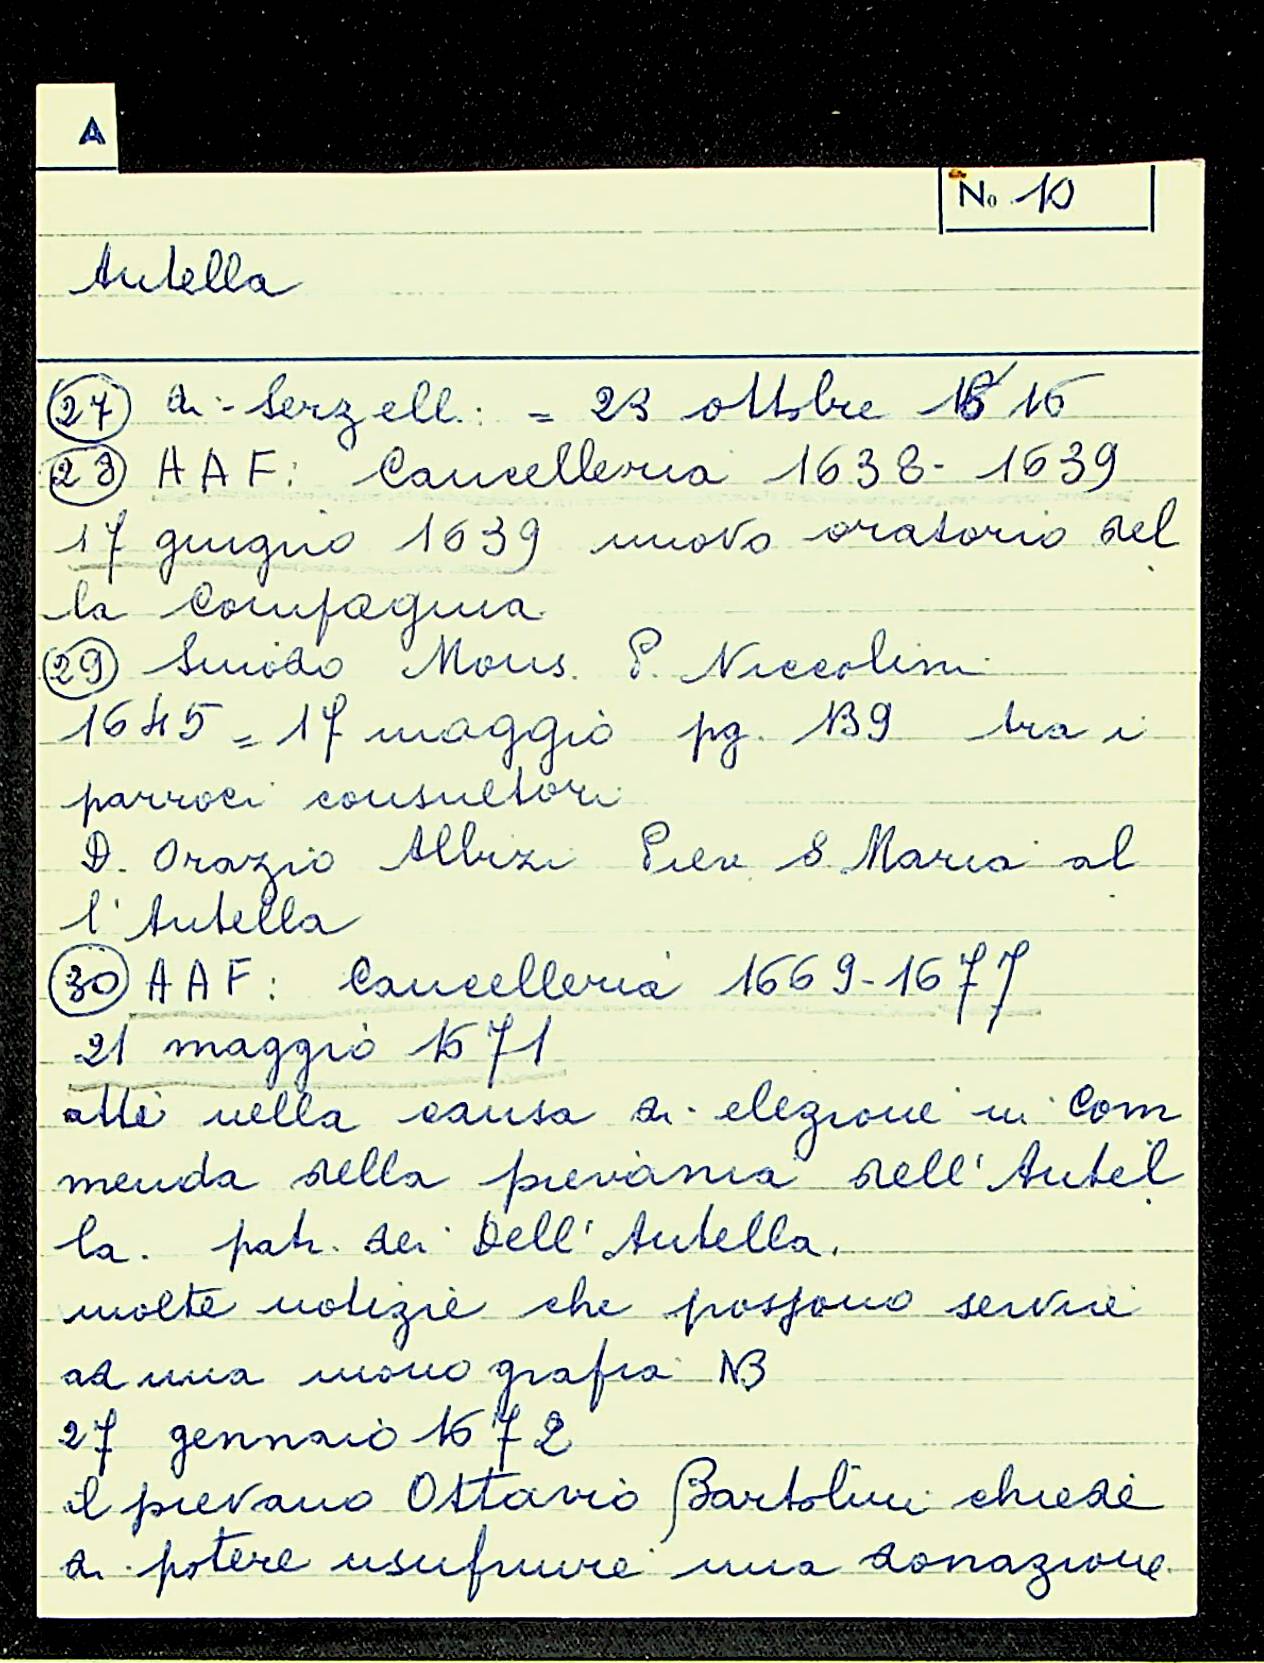 A
No 10
Antella
27 di Serzelli = 23 ottobre 1616
28 AAF: Cancelleria 1638-1639
17 giugno 1639 nuovo oratorio del
la Compagnia
29 Sinodo Mons. P. Niccolini
1645 = 17 maggio pg. 139 tra i
parroci consultori
D. Orazio Albizi Piev. S. Maria al
l'Antella
30 AAF: Cancelleria 1669-1677
21 maggio 1671
atti nella causa di elezione in Com
menda della pievania dell'Antel
la. patr. dei Dell'Antella.
molte notizie che possono servire
ad una monografia NB
27 gennaio 1672
il pievano Ottavio Bartolini chiede
di potere usufruire una donazione